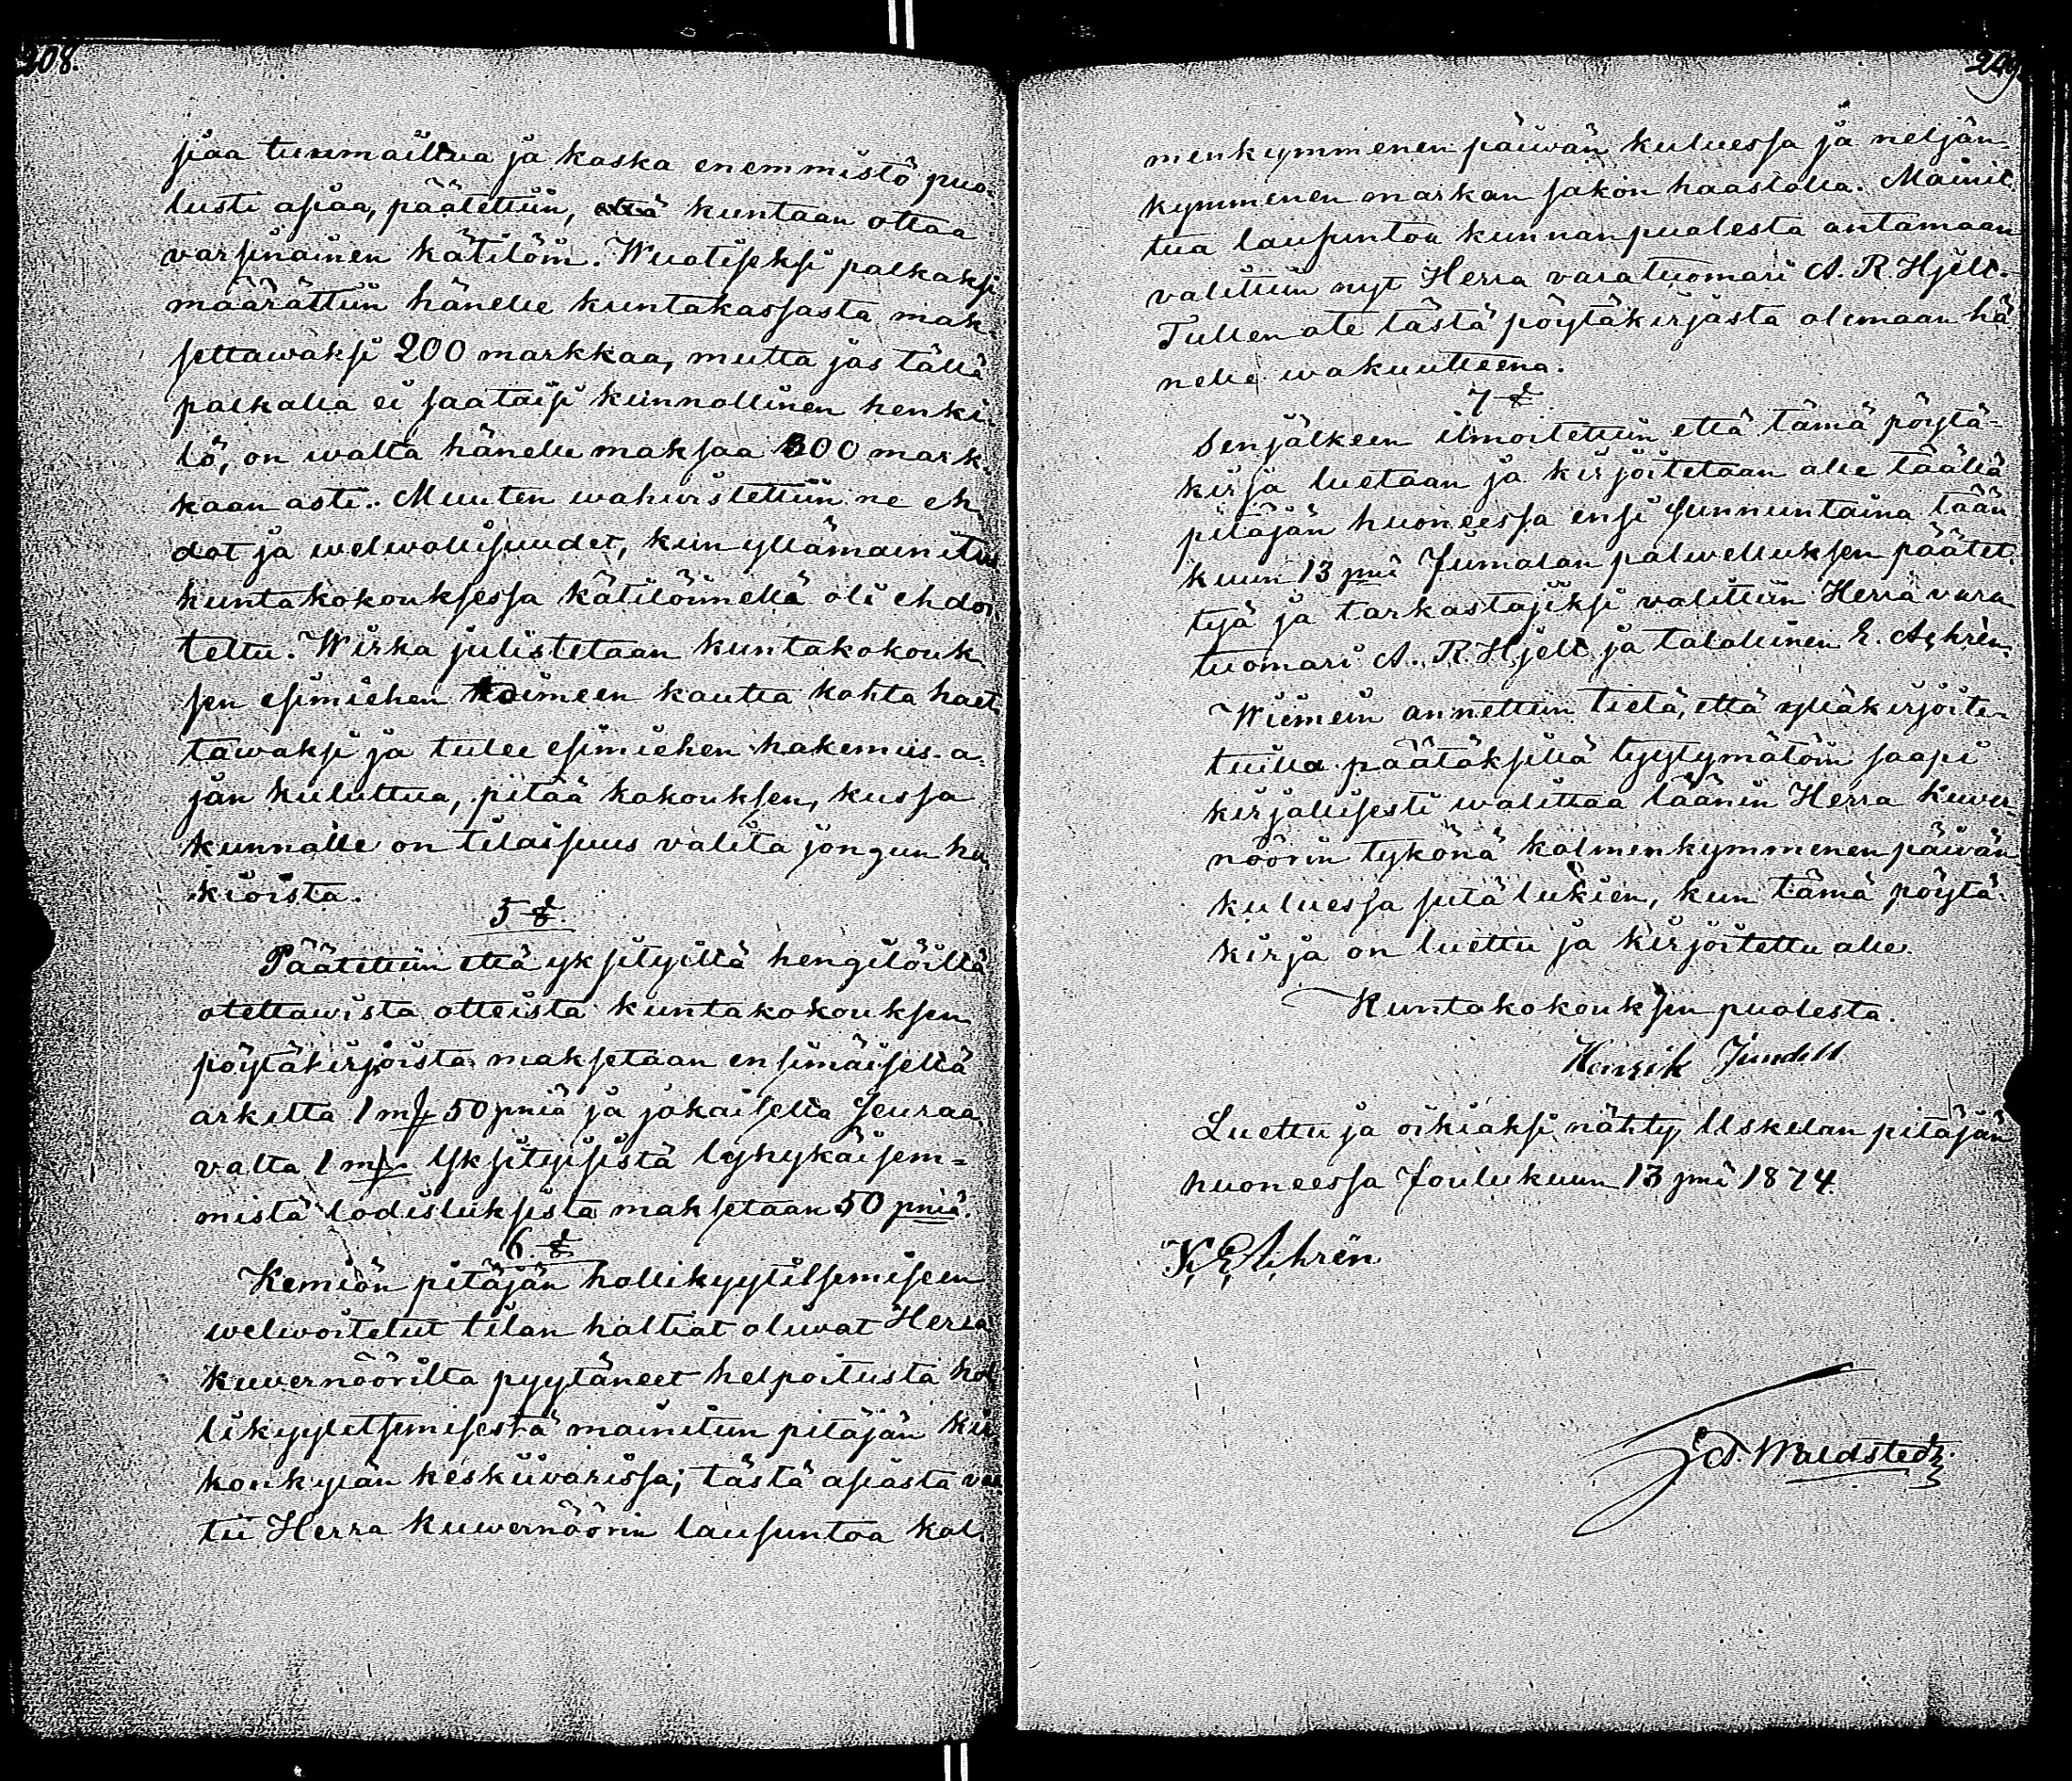 208.
siaa tuumailtua ja koska enemmistö puo-
lusti asiaa, päätettiin, että kuntaan ottaa
varsinainen kätilöin. Wuotiseksi palkaksi
määrättiin hänelle kuntakassasta mak-
settawaksi 200 markkaa, mutta jos tällä
palkalla ei saataisi kunnollinen henki-
lö, on walta hänelle maksaa 300 mark-
kaan asti. Muuten wahwistettiin ne eh-
dot ja welwollisuudet, kuin yllämainitus
kuntakokouksessa kätilöinnellä oli ehdo-
teltu. Wirka julistetaan kuntakokouk-
sen esimiehen toimeen kautta kohta haet-
tawaksi ja tulee esimiehen hakemus-a-
jan kuluttua, pitää kokouksen, kussa
kunnalle on tilaisuus valita jongun ha-
kioista.
5 §.
Päätettiin että yksityillä hengilöillä
otettawista otteista kuntakokouksen
pöytäkirjoista maksetaan ensimäiseltä
arkilta 1 mk 50 pniä ja jokaiselta seuraa-
valta 1 mk. Yksityisistä lyhykäisem-
mistä todistuksista maksetaan 50 pniä.
6 §
Kemiön pitäjän hollikyytitsemiseen
welwoitetut tilan haltiat oliwat Herra
kuvernöörilta pyytäneet helpoitusta hol-
likyytitsemisestä mainitun pitäjän kir-
konkylän keskiivarissa; tästä asiasta vaa-
tii Herra Kuwernöörin lausuntoa kol-
249
menkymmenen päiwän kuluessa ja neljän-
kymmenen markan sakon haastolla. Mainit-
tua lausuntoa kunnan puolesta antamaan
valittiin nyt Herra varatuomari A. R. Hjelt.
Tullen ote tästä pöytäkirjasta olemaan hä-
nelle wakuutteena.
7 §
Senjälkeen ilmoitettiin että tämä pöytä-
kirja luetaan ja kirjoitetaan alle täällä
pitäjän huoneessa ensi sunnuntaina tään
kuun 13 pnä Jumalan palwelluksen päätet-
tyä ja tarkastajiksi valittiin Herra vara
tuomari A. R. Hjelt ja talollinen E. Achrén.
Wiimein annettiin tietä, että ylläkirjoite-
tuilla päätöksillä tyytymätöin saapi
kirjallisesti walittaa läänin Herra Kuver-
nöörin tykönä kolmenkymmenen päiwän
kuluessa siitä lukien, kun tämä pöytä-
kirja on luettu ja kirjoitettu alle.
Kuntakokouksen puolesta.
Henrik Jundell
Luettu ja oikiaksi nähty Uskelan pitäjän
huoneessa Joulukuun 13 pnä 1874.
K. E. Achrén
A. Waldstedt.